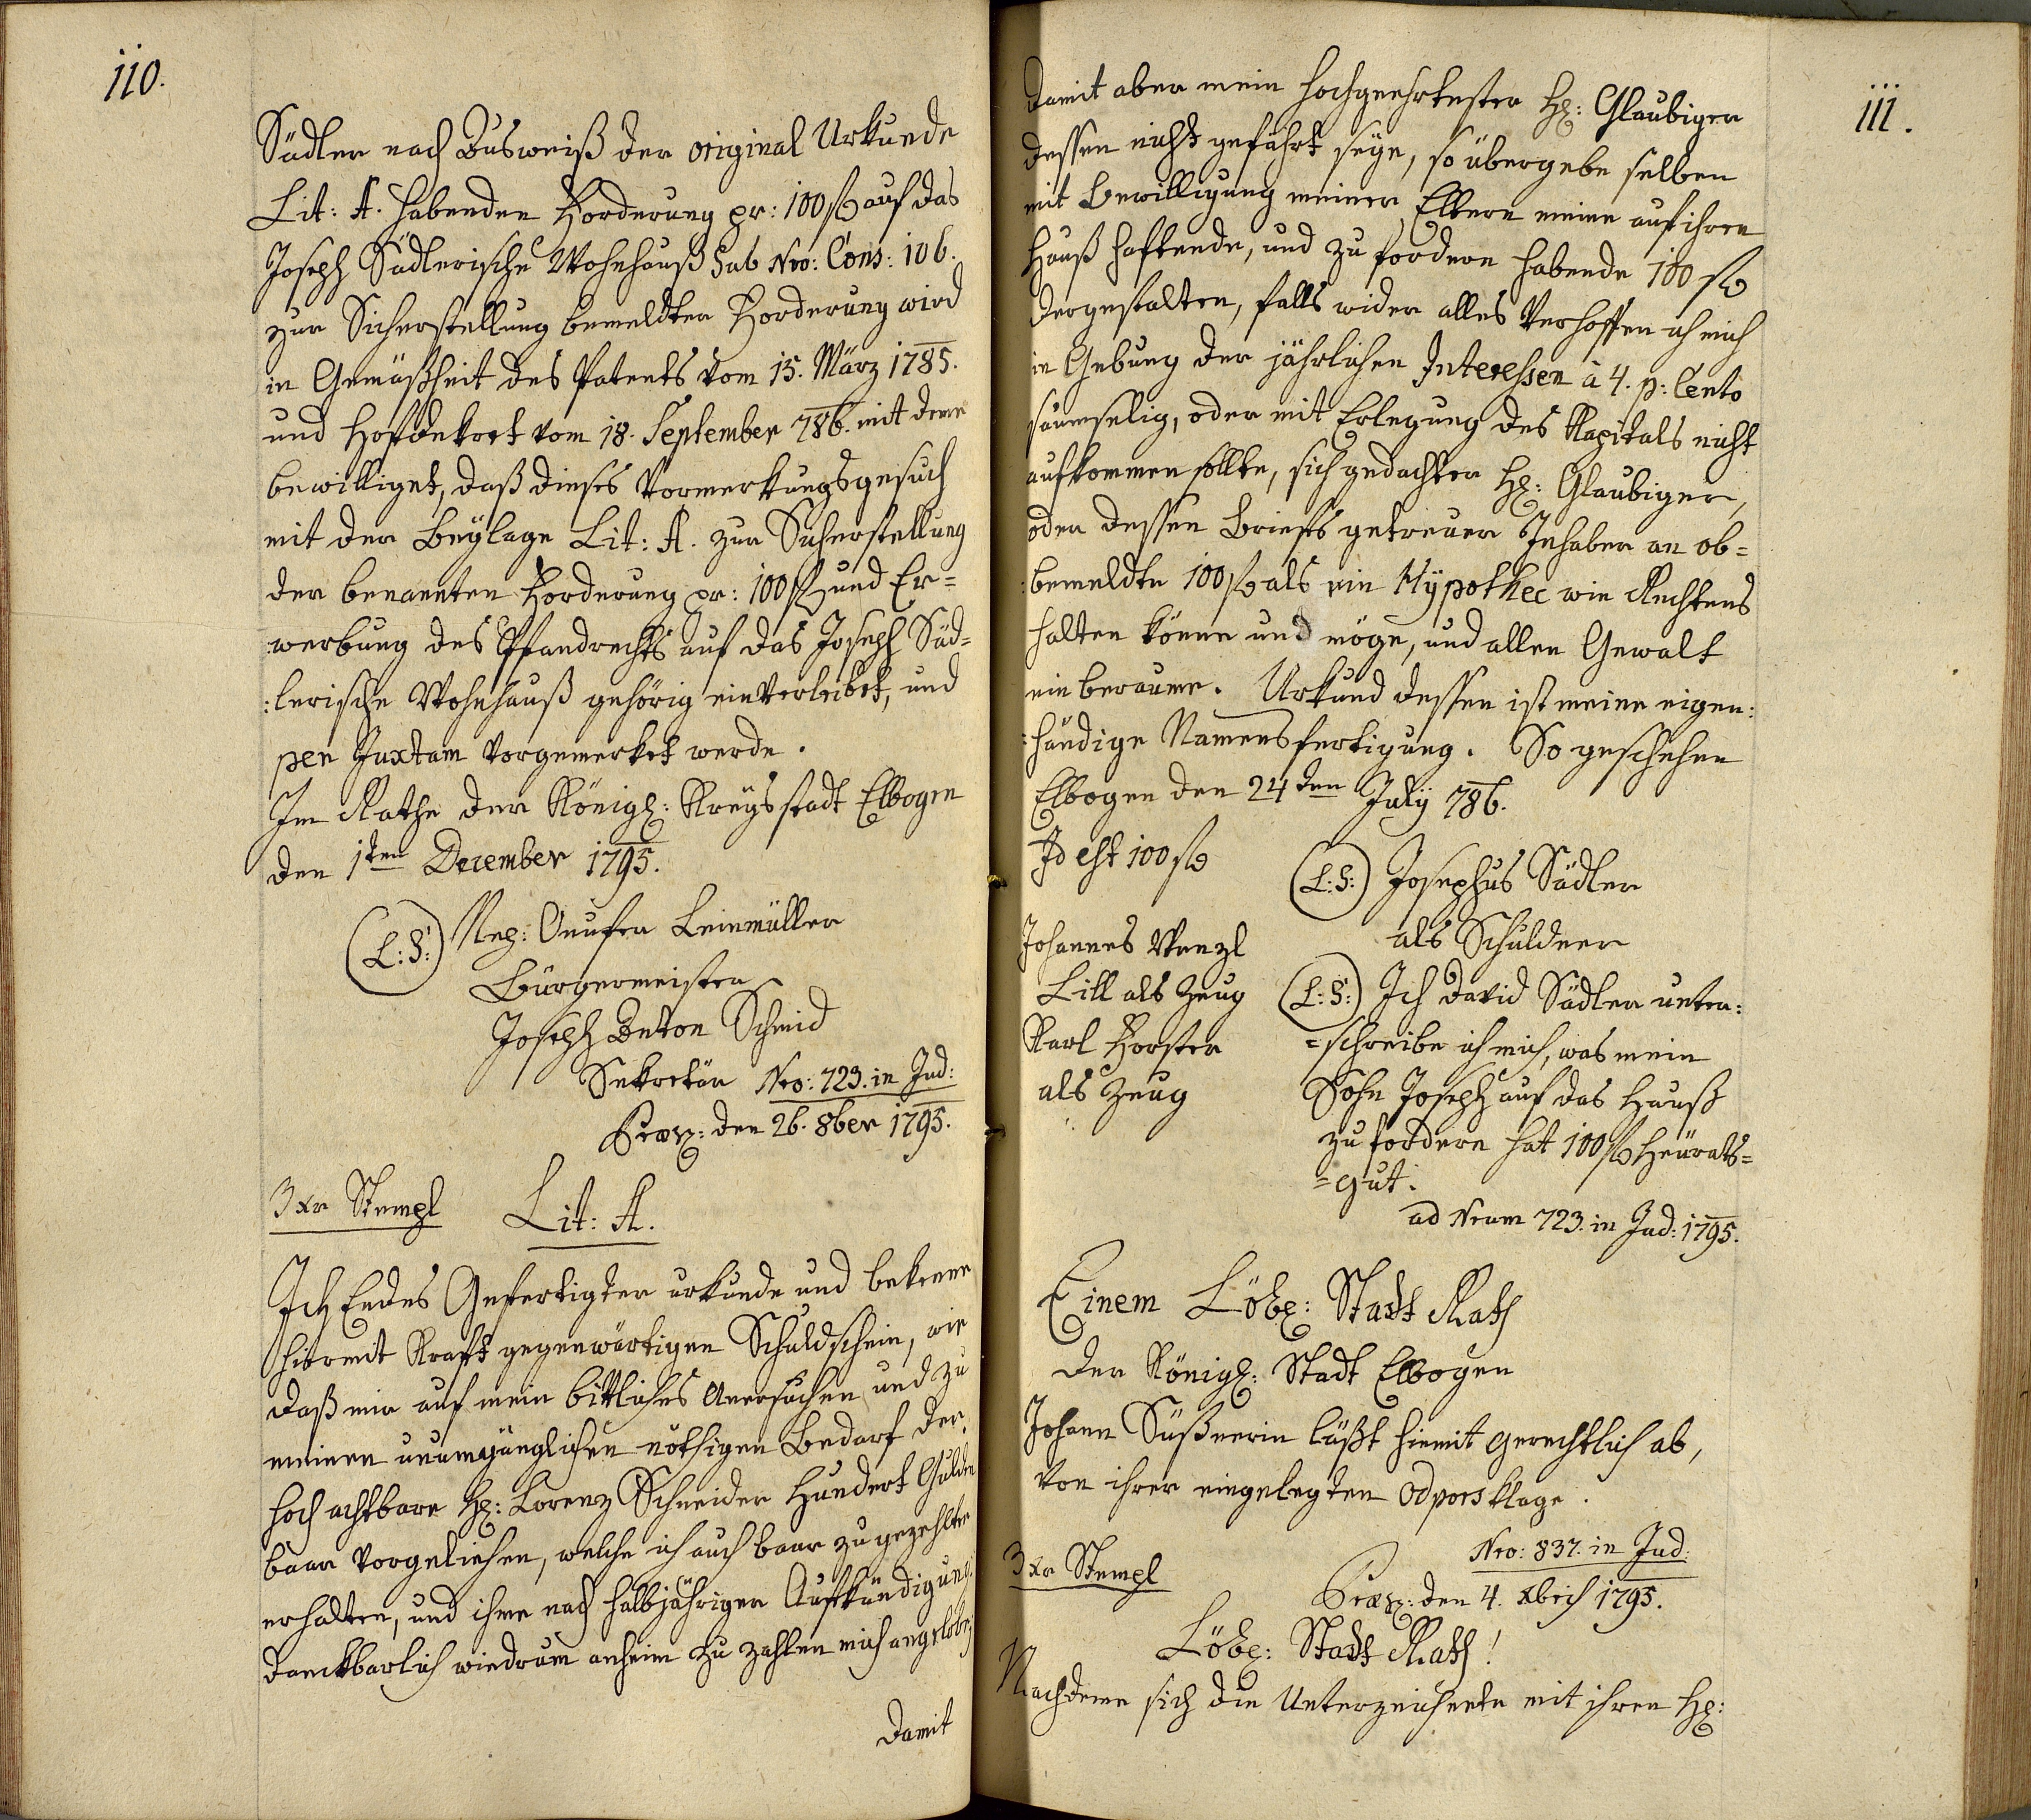 110.
Sädler nach Ausweiß der original Urkunde
Lit: A. habenden Forderung pr: 100 f auf das
Joseph Sädlerische Wohnhauß sub Nro: Cons: 106.
zur Sicherstellung bemeldter Forderung wird
in Gemäßheit des Patents vom 15. März 1785.
und Hofdekret vom 18. September 786. mit deme
bewilliget, daß dieses Vormerkungsgesuch
mit der Beÿlage Lit: A. zur Sicherstellung
der benannten Forderung pr: 100 f und Er=
werbung des Pfandrechts auf das Joseph Säd=
:lerische Wohnhauß gehörig einverleibet, und
per Juxtam vorgemerket werde.
Im Rathe der Königl: Kreÿsstadt Elbogen
den 1ten December 1795.
(L:S:) Nep: Onufer Leinmüller
Bürgermeister
Joseph Anton Schmid
Sekretär Nro: 723. in Jud:
Præs: den 26. 8ber 1795.
3 xr Stempl Lit: A.
Ich Endes Gefertigter urkunde und bekenne
hiermit Kraft gegenwärtigen Schuldschein, wie
daß mir auf mein bittliches Anersuchen und zu
meinen unumgänglichen nöthigen Bedarf der
hoch achtbare H: Lorenz Schneider Hundert Gulden
baar vorgeliehen, welche ich auch baar zu gezehlter
erhalten, und ihme nach halbjähriger Aufkündigung
danckbarlich wiedrum anheim zu zahlen mich angelobe,
Damit
111.
damit aber mein hochgeehrtester H: Glaubiger
dessen nicht gefährt seÿe, so übergebe selben
mit Bewilligung meiner Eltern meine auf ihren
Hauß haftende, und zu fordern habende 100 f
dergestalten, falls wider alles Verhoffen ich mich
in Gebung der jährlichen Interessen à 4. p: Cento
säumselig, oder mit Erlegung des Kapitals nicht
aufkommen sollte, sich gedachter H: Glaubiger,
oder dessen Briefs getreuer Inhaber an ob=
:bemeldte 100 f als ein Hÿpothec wie Rechtens
halten könne und möge, und allen Gewalt
ein beraume. Urkund dessen ist meine eigen:
:händige Namensfertigung. So geschehen
Elbogen den 24ten Julÿ 786.
Id est 100 f
(L:S:) Josephus Sädler
als Schuldner
Johannes Wenzl
Lill als Zeug
Karl Forster
als Zeug
(L:S:) Ich David Sädler unter:
=schreibe ich mich, was mein
Sohn Joseph auf das Hauß
zu fordern hat 100 f Heürats=
=gut.
ad Nrum 723. in Jud: 1795.
Einem Löbl: Stadt Rath
der Königl: Stadt Elbogen
Johann Süßnerin läßt hiemit gerechtlich ab,
von ihrer eingelegten Odporsklage.
Nro: 837. in Jud:
3 xr Stempl
Præs: den 4. Xbris 1795.
Löbl: Stadt Rath!
Nachdeme sich die Unterzeichnete mit ihren H: